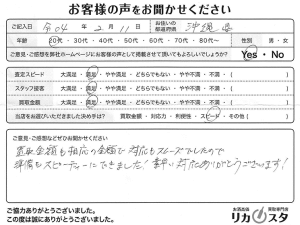 お客様の声をお聞かせください
ご記入日 令04年 2月11日 お住いの都道府県 沖縄県
年齢 20代・30代・40代・50代・60代・70代・80代〜 性別 男・女
ご意見・ご感想を弊社ホームページにお客様の声として掲載させて頂いてもよろしいでしょうか? Yes・No
査定スピード 大満足・満足・やや満足・どちらでもない・やや不満・不満・( )
スタッフ接客 大満足・満足・やや満足・どちらでもない・やや不満・不満・( )
買取金額 大満足・満足・やや満足・どちらでもない・やや不満・不満・( )
当店をお選びいただきました決め手は? 買取金額・対応力・利便性・スピード・その他( )
ご意見・ご感想などぜひお聞かせください
買取金額も相応の金額で対応もスムーズでしたので
準備もスピーディーにできました! 早い対応ありがとうございます!
ご協力ありがとうございました。
この度は誠にありがとうございました。
お酒出張 買取専門店
リカスタ